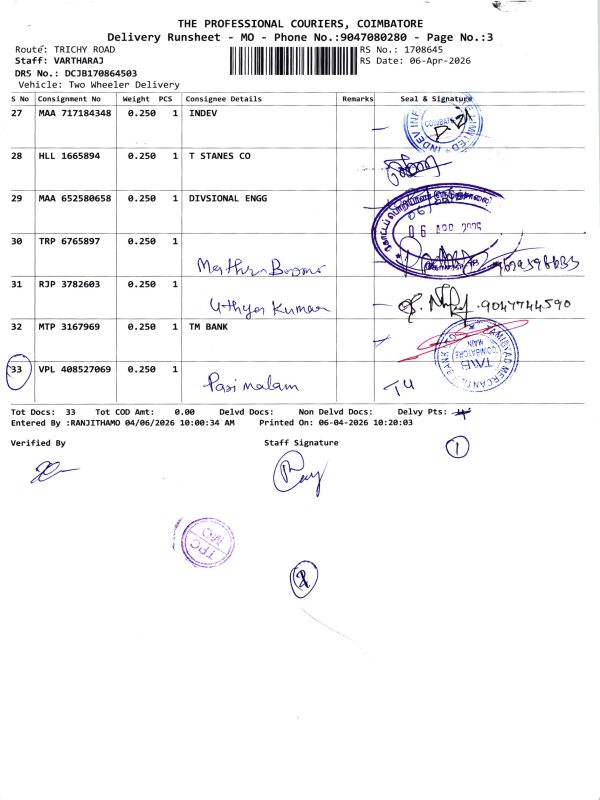 THE PROFESSIONAL COURIERS, COIMBATORE
Delivery Runsheet - MO - Phone No.:9047080280 - Page No.:3
Route: TRICHY ROAD
RS No.: 1708645
Staff: VARTHARAJ
RS Date: 06-Apr-2026
DRS No.: DCJB170864503
Vehicle: Two Wheeler Delivery
S No Consignment No Weight PCS Consignee Details Remarks Seal & Signature
27 MAA 717184348 0.250 1 INDEV
28 HLL 1665894 0.250 1 T STANES CO
29 MAA 652580658 0.250 1 DIVSIONAL ENGG
30 TRP 6765897 0.250 1
31 RJP 3782603 0.250 1 Uthya Kumar 9047744590
32 MTP 3167969 0.250 1 TM BANK
TMB COIMBATORE MAIN
33 VPL 408527069 0.250 1 Parimalam
Tot Docs: 33 Tot COD Amt: 0.00 Delvd Docs: Non Delvd Docs: Delvy Pts:
Entered By :RANJITHAMO 04/06/2026 10:00:34 AM Printed On: 06-04-2026 10:20:03
Verified By Staff Signature
1
TPC
MO
2